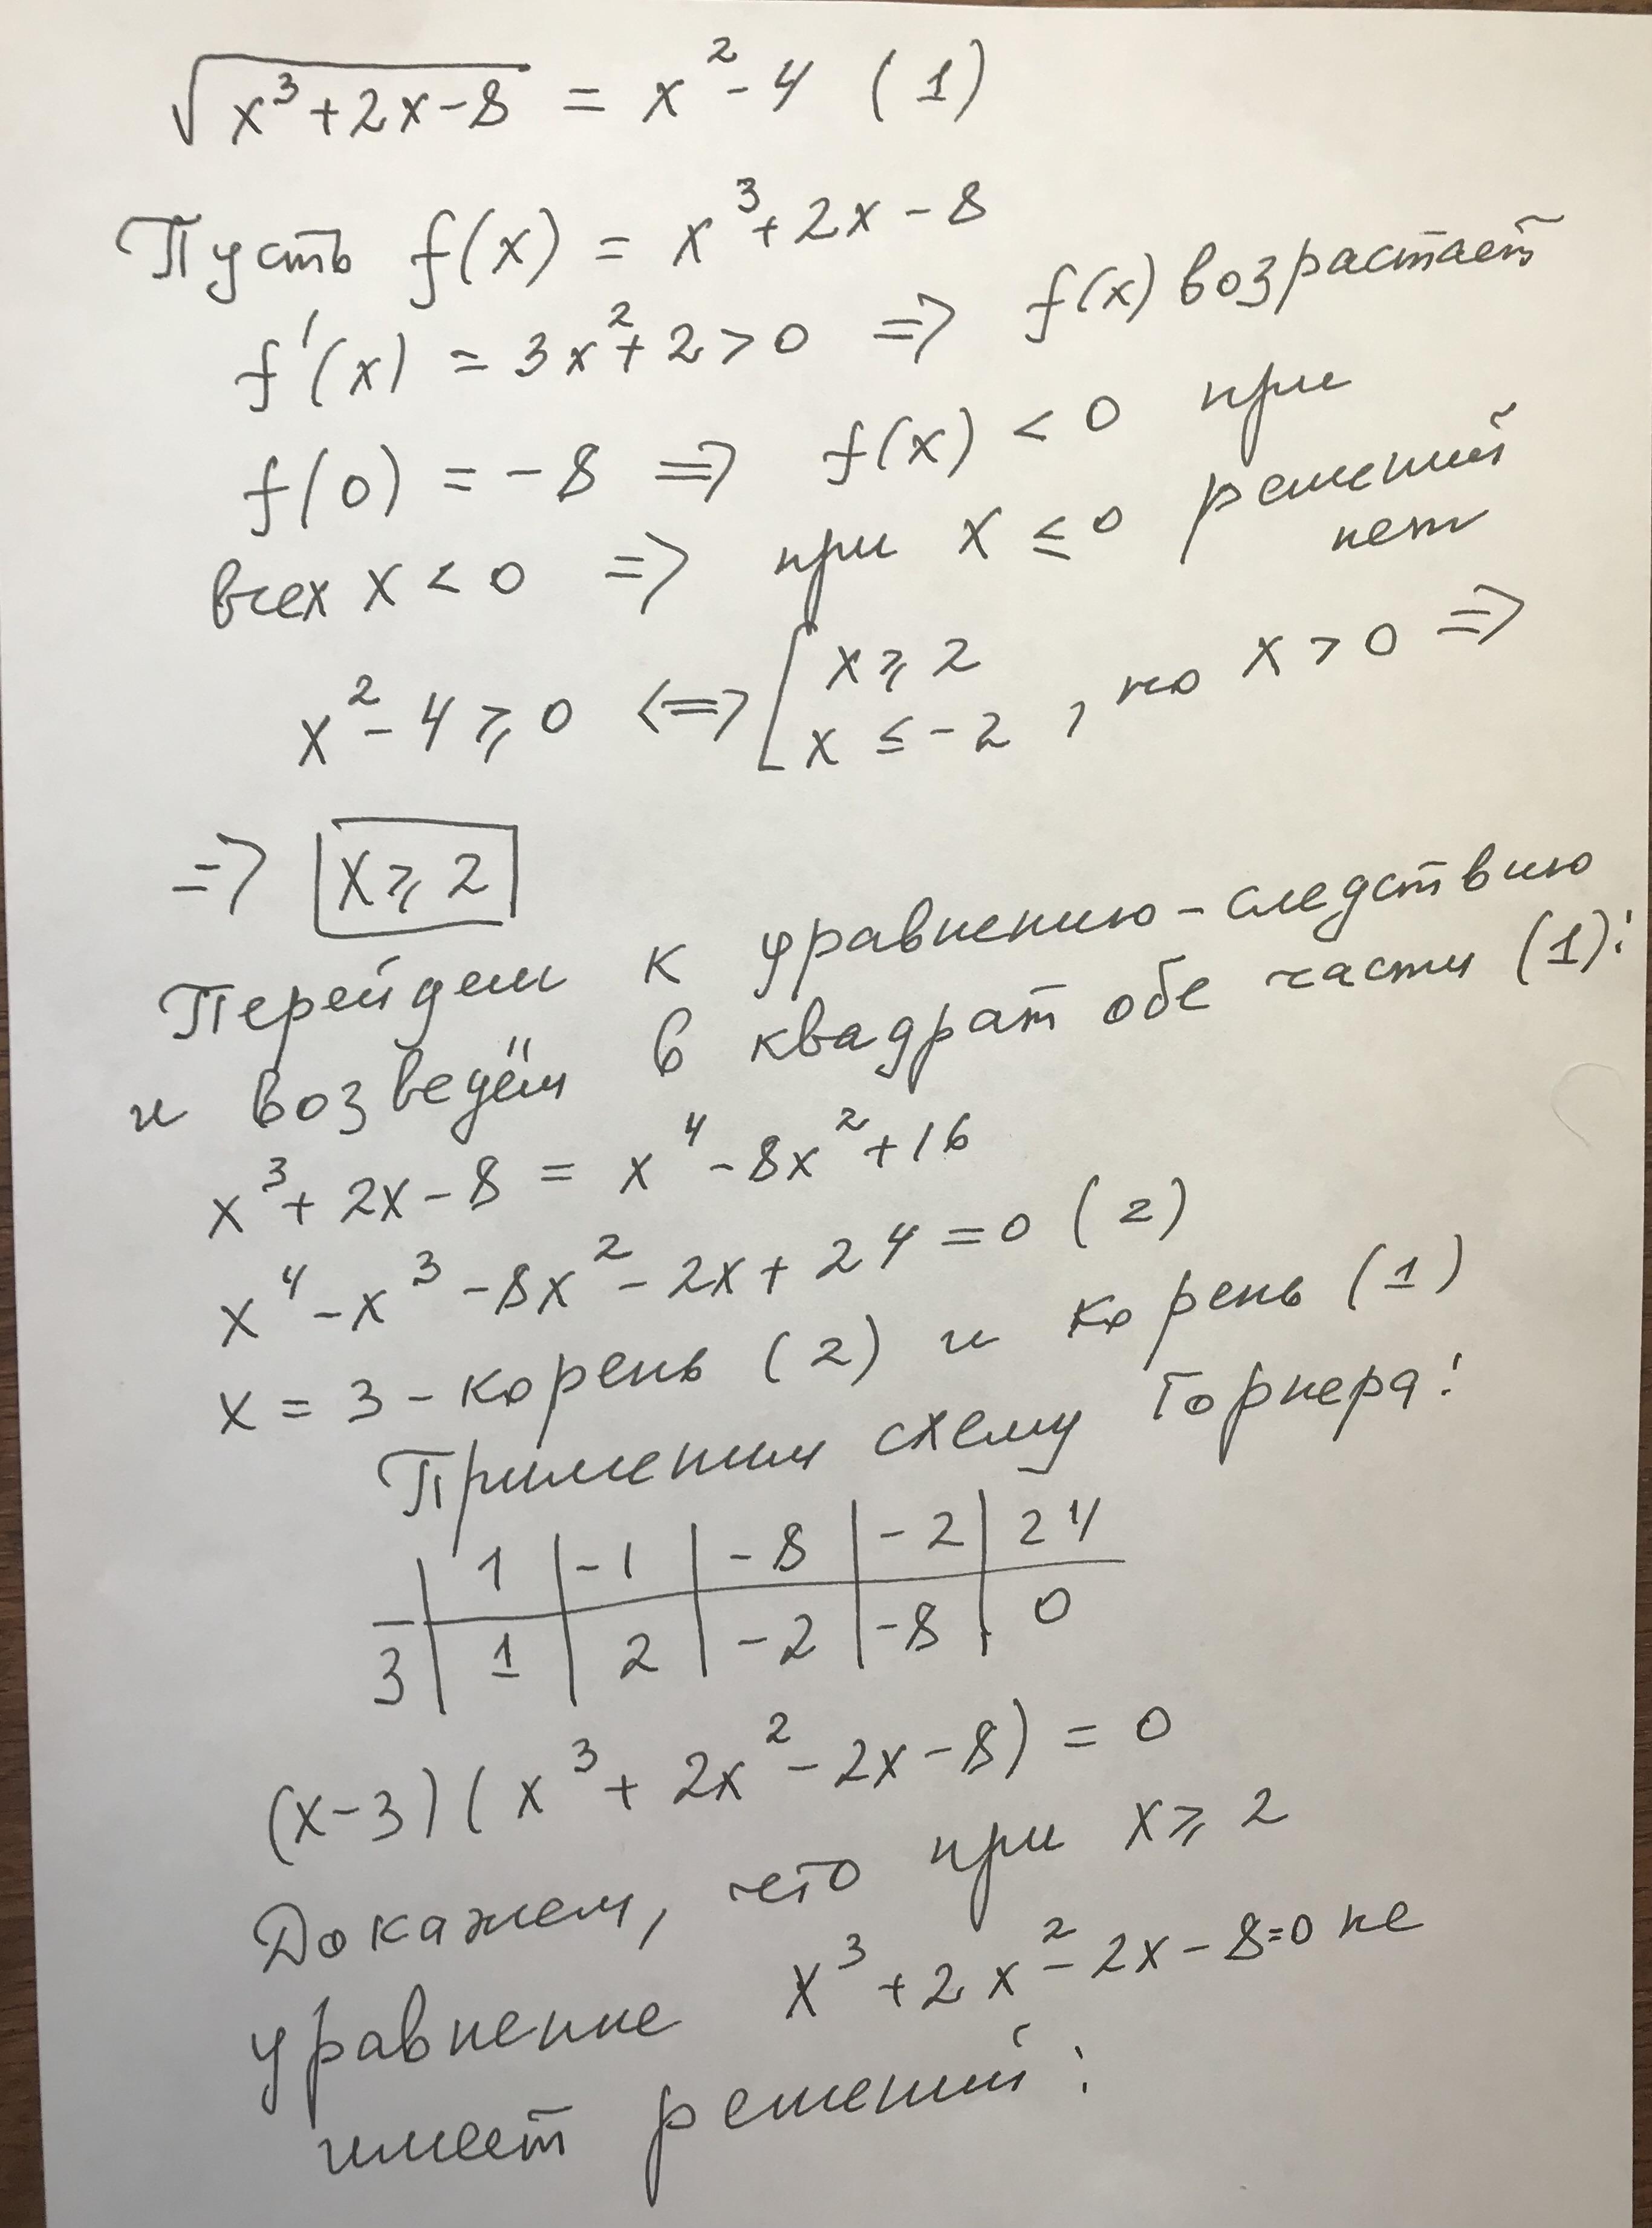 √(x³+2x-8) = x²-4 (1)
Пусть f(x) = x³+2x-8
f'(x) = 3x²+2>0 => f(x) возрастает
f(0) = -8 => f(x) < 0 при
всех x < 0 => при x ≤ 0 решений
нет
x²-4 ≥ 0 <=> [x ≥ 2
x ≤ -2, но x > 0 =>
=> x ≥ 2
Перейдем к уравнению-следствию
и возведём в квадрат обе части (1):
x³+2x-8 = x⁴-8x²+16
x⁴-x³-8x²-2x+24=0 (2)
x = 3 - корень (2) и корень (1)
Применим схему Горнера:
1 | -1 | -8 | -2 | 24
3 | 1 | 2 | -2 | -8 | 0
(x-3)(x³+2x²-2x-8) = 0
Докажем, что при x ≥ 2
уравнение x³+2x²-2x-8=0 не
имеет решений: